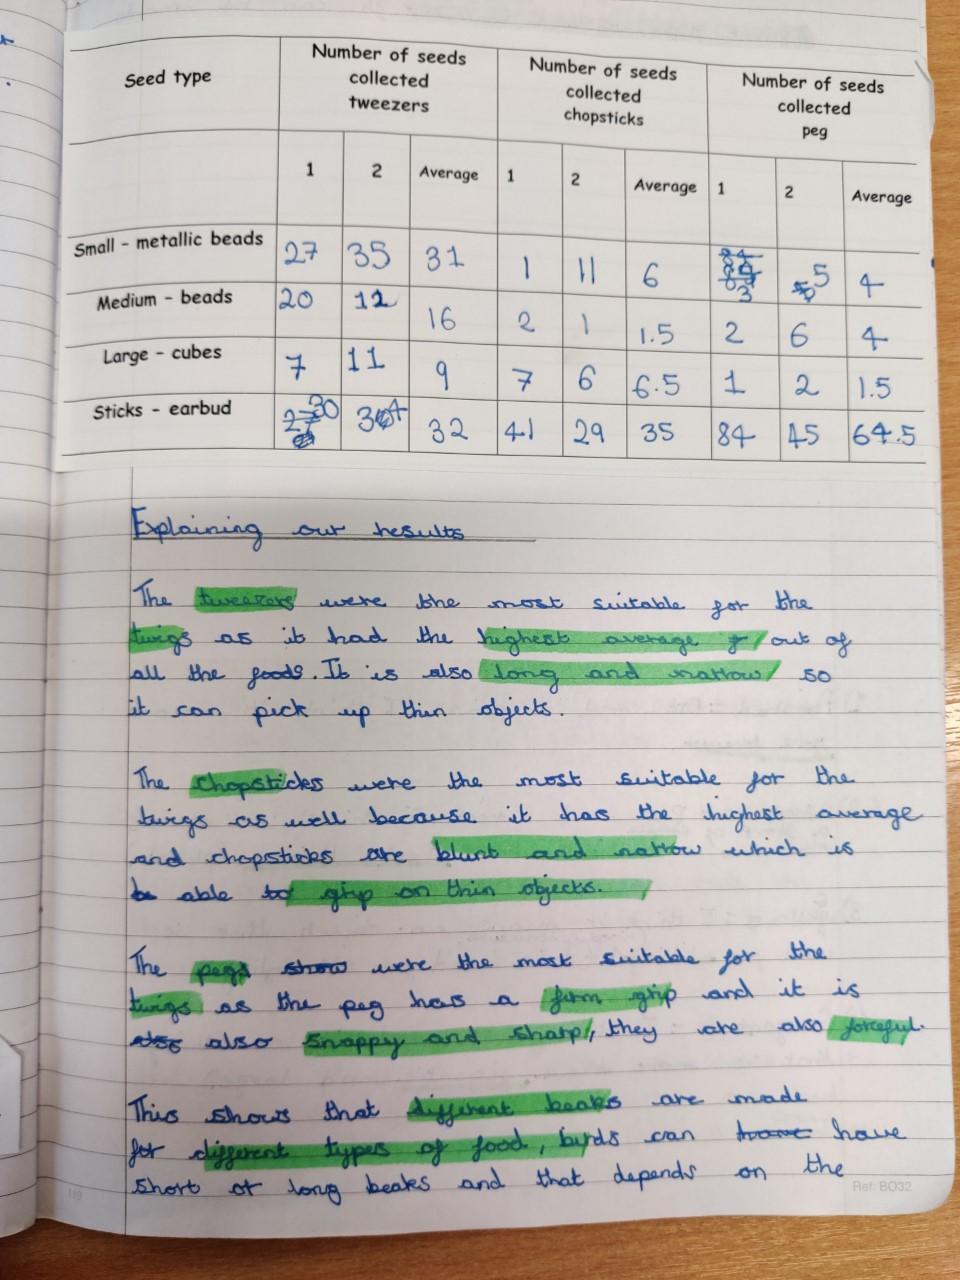 Seed type
Number of seeds collected tweezers
Number of seeds collected chopsticks
Number of seeds collected peg
1 2 Average 1 2 Average 1 2 Average
Small - metallic beads 27 35 31 1 11 6 3 5 4
Medium - beads 20 12 16 2 1 1.5 2 6 4
Large - cubes 7 11 9 7 6 6.5 1 2 1.5
Sticks - earbud 30 34 32 41 29 35 84 45 64.5
Explaining our results
The tweezers were the most suitable for the
twigs as it had the highest average out of
all the foods. It is also long and narrow so
it can pick up thin objects.
The chopsticks were the most suitable for the
twigs as well because it has the highest average
and chopsticks are blunt and narrow which is
able to grip on thin objects.
The pegs show were the most suitable for the
twigs as the peg has a firm grip and it is
also also snappy and sharp, they are also forceful.
This shows that different beaks are made
for different types of food, byrds can have
short or long beaks and that depends on the
119
Ref: BO32